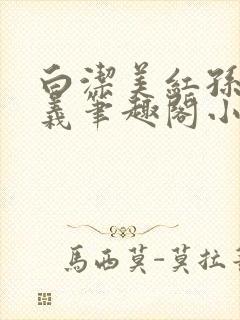 白潔美紅孫
義筆趣閣小
馬西莫-莫拉